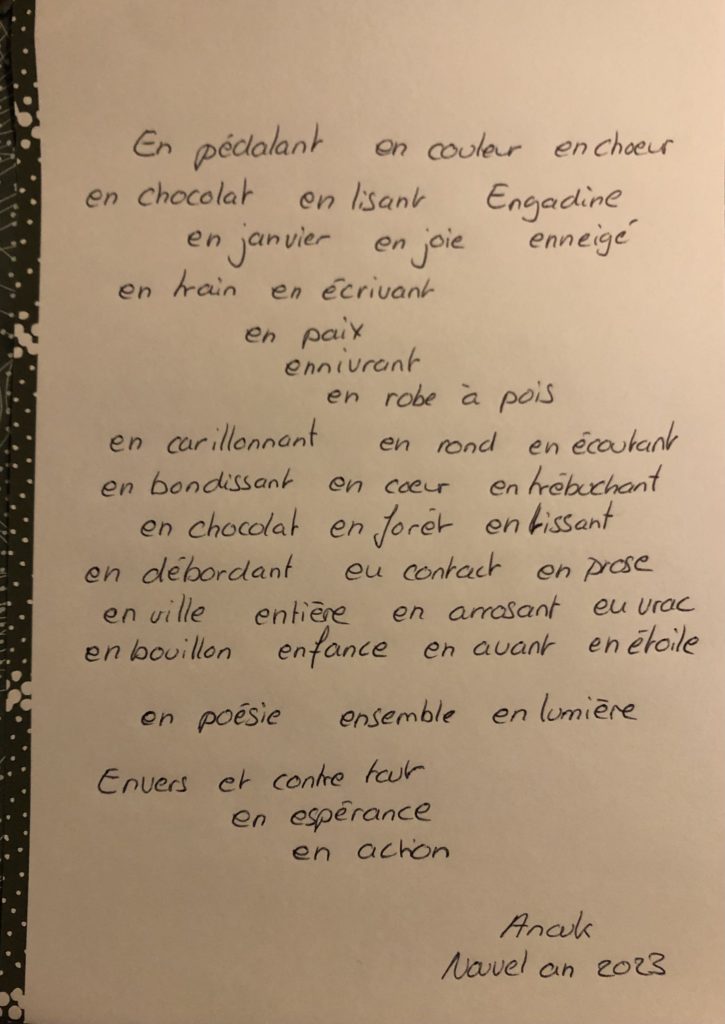 En pédalant en couleur en choeur
en chocolat en lisant Engadine
en janvier en joie enneigé
en train en écrivant
en paix
ennivrant
en robe à pois
en carillonnant en rond en écoutant
en bondissant en cœur en trébuchant
en chocolat en forêt en tissant
en débordant en contact en prose
en ville entière en arrosant en vrac
en bouillon enfance en avant en étoile
en poésie ensemble en lumière
Envers et contre tout
en espérance
en action
Anouk
Nouvel an 2023